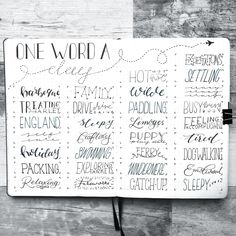 ONE WORD A
day
barbecue
TREATING
ENGLAND
holidays
PACKING
Relaxing
FAMILY
DRIVE
sleepy
Crafting
SWIMMING
EXPLORING
HOT
wildlife
PADDLING
Limoges
PUPPY
FERRY
HOMETIME
CATCHUP
EXPRESSIONS
SETTLING
BUSY
FEELING
tired
DOGWALKING
Emotional
SLEEPY